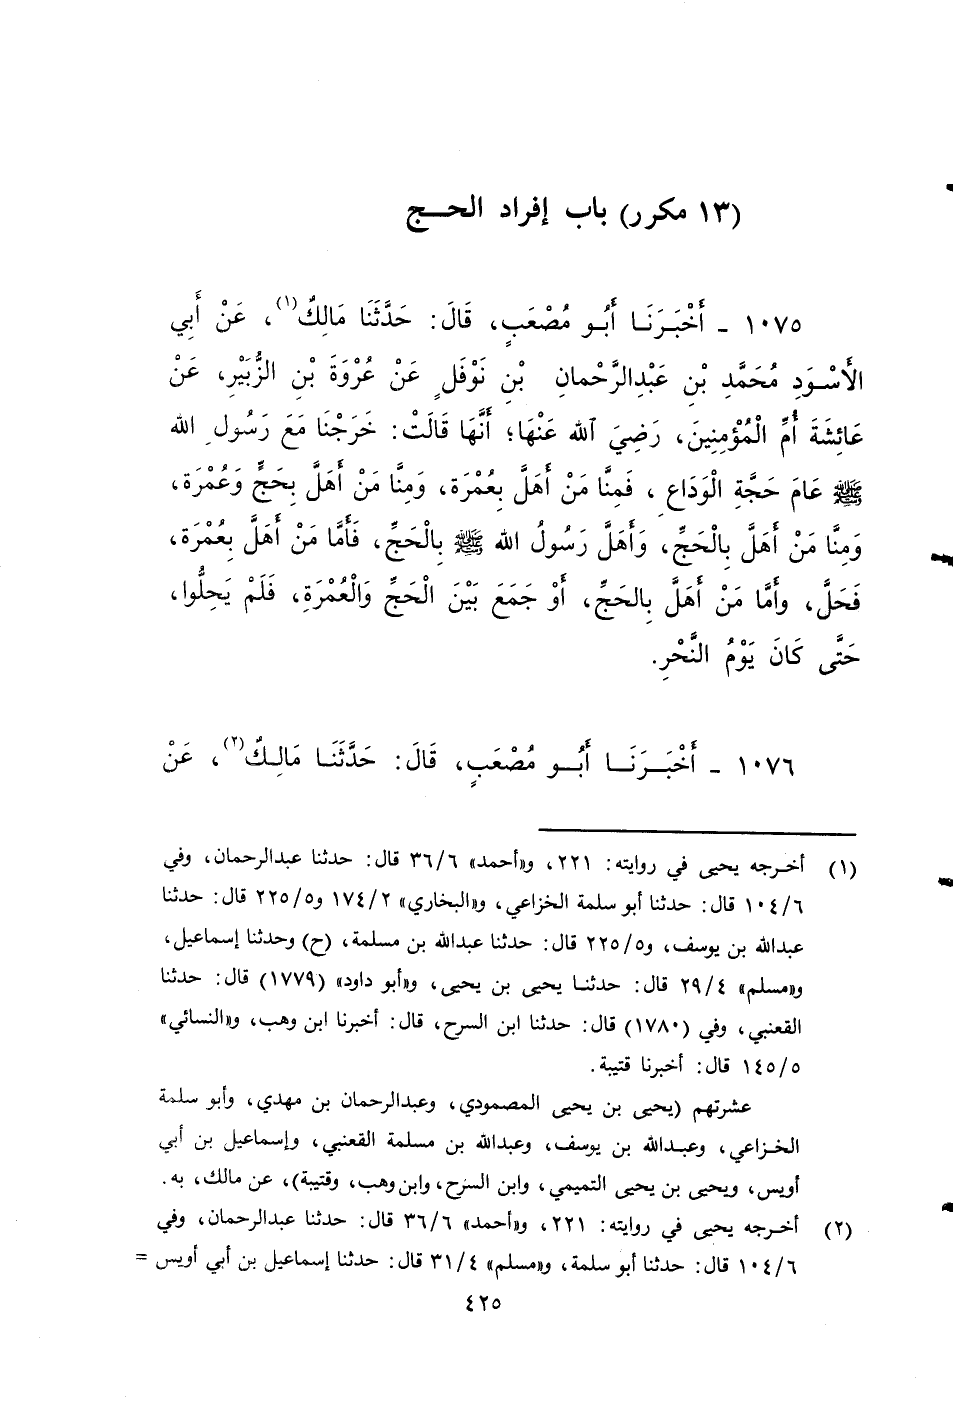 (١٣ مكرر) باب إفراد الحـج
١٠٧٥ ـ أَخْبَرَنَا أَبُو مُصْعَبٍ، قَالَ: حَدَّثَنَا مَالِكٌ(١)، عَنْ أَبِي
الأَسْوَدِ مُحَمَّدِ بْنِ عَبْدِالرَّحْمانِ بْنِ نَوْفَلٍ عَنْ عُرْوَةَ بْنِ الزُّبَيْرِ، عَنْ
عَائِشَةَ أُمِّ الْمُؤْمِنِينَ، رَضِيَ ٱلله عَنْهَا؛ أَنَّهَا قَالَتْ: خَرَجْنَا مَعَ رَسُولِ الله
ﷺ عَامَ حَجَّةِ الْوَدَاعِ، فَمِنَّا مَنْ أَهَلَّ بِعُمْرَة، وَمِنَّا مَنْ أَهَلَّ بِحَجٍّ وَعُمْرَة،
وَمِنَّا مَنْ أَهَلَّ بِالْحَجِّ، وَأَهَلَّ رَسُولُ الله ﷺ بِالْحَجِّ، فَأَمَّا مَنْ أَهَلَّ بِعُمْرَة،
فَحَلَّ، وأَمَّا مَنْ أَهَلَّ بِالحَجِّ، أَوْ جَمَعَ بَيْنَ الْحَجِّ وَالْعُمْرَةِ، فَلَمْ يَحِلُّوا،
حَتَّى كَانَ يَوْمُ النَّحْرِ.
١٠٧٦ ـ أَخْبَـرَنَـا أَبُـو مُصْعَبٍ، قَالَ: حَدَّثَنَـا مَالِـكٌ(٢)، عَنْ
(١) أخـرجه يحيى في روايته: ٢٢١، و«أحمد» ٣٦/٦ قال: حدثنا عبدالرحمان، وفي
١٠٤/٦ قال: حدثنا أبو سلمة الخزاعي، و«البخاري» ١٧٤/٢ و٢٢٥/٥ قال: حدثنا
عبدالله بن يوسف، و٢٢٥/٥ قال: حدثنا عبدالله بن مسلمة، (ح) وحدثنا إسماعيل،
و«مسلم» ٢٩/٤ قال: حدثنـا يحيى بن يحيى، و«أبو داود» (١٧٧٩) قال: حدثنا
القعنبي، وفي (١٧٨٠) قال: حدثنا ابن السرح، قال: أخبرنا ابن وهب، و«النسائي»
١٤٥/٥ قال: أخبرنا قتيبة.
عشرتهم (يحيى بن يحيى المصمودي، وعبدالرحمان بن مهدي، وأبو سلمة
الخـزاعي، وعبـدالله بن يوسف، وعبدالله بن مسلمة القعنبي، وإسماعيل بن أبي
أويس، ويحيى بن يحيى التميمي، وابن السرح، وابن وهب، وقتيبة)، عن مالك، به.
(٢) أخـرجه يحيى في روايته: ٢٢١، و«أحمد» ٣٦/٦ قال: حدثنا عبدالرحمان، وفي
١٠٤/٦ قال: حدثنا أبو سلمة، و«مسلم» ٣١/٤ قال: حدثنا إسماعيل بن أبي أويس =
٤٢٥